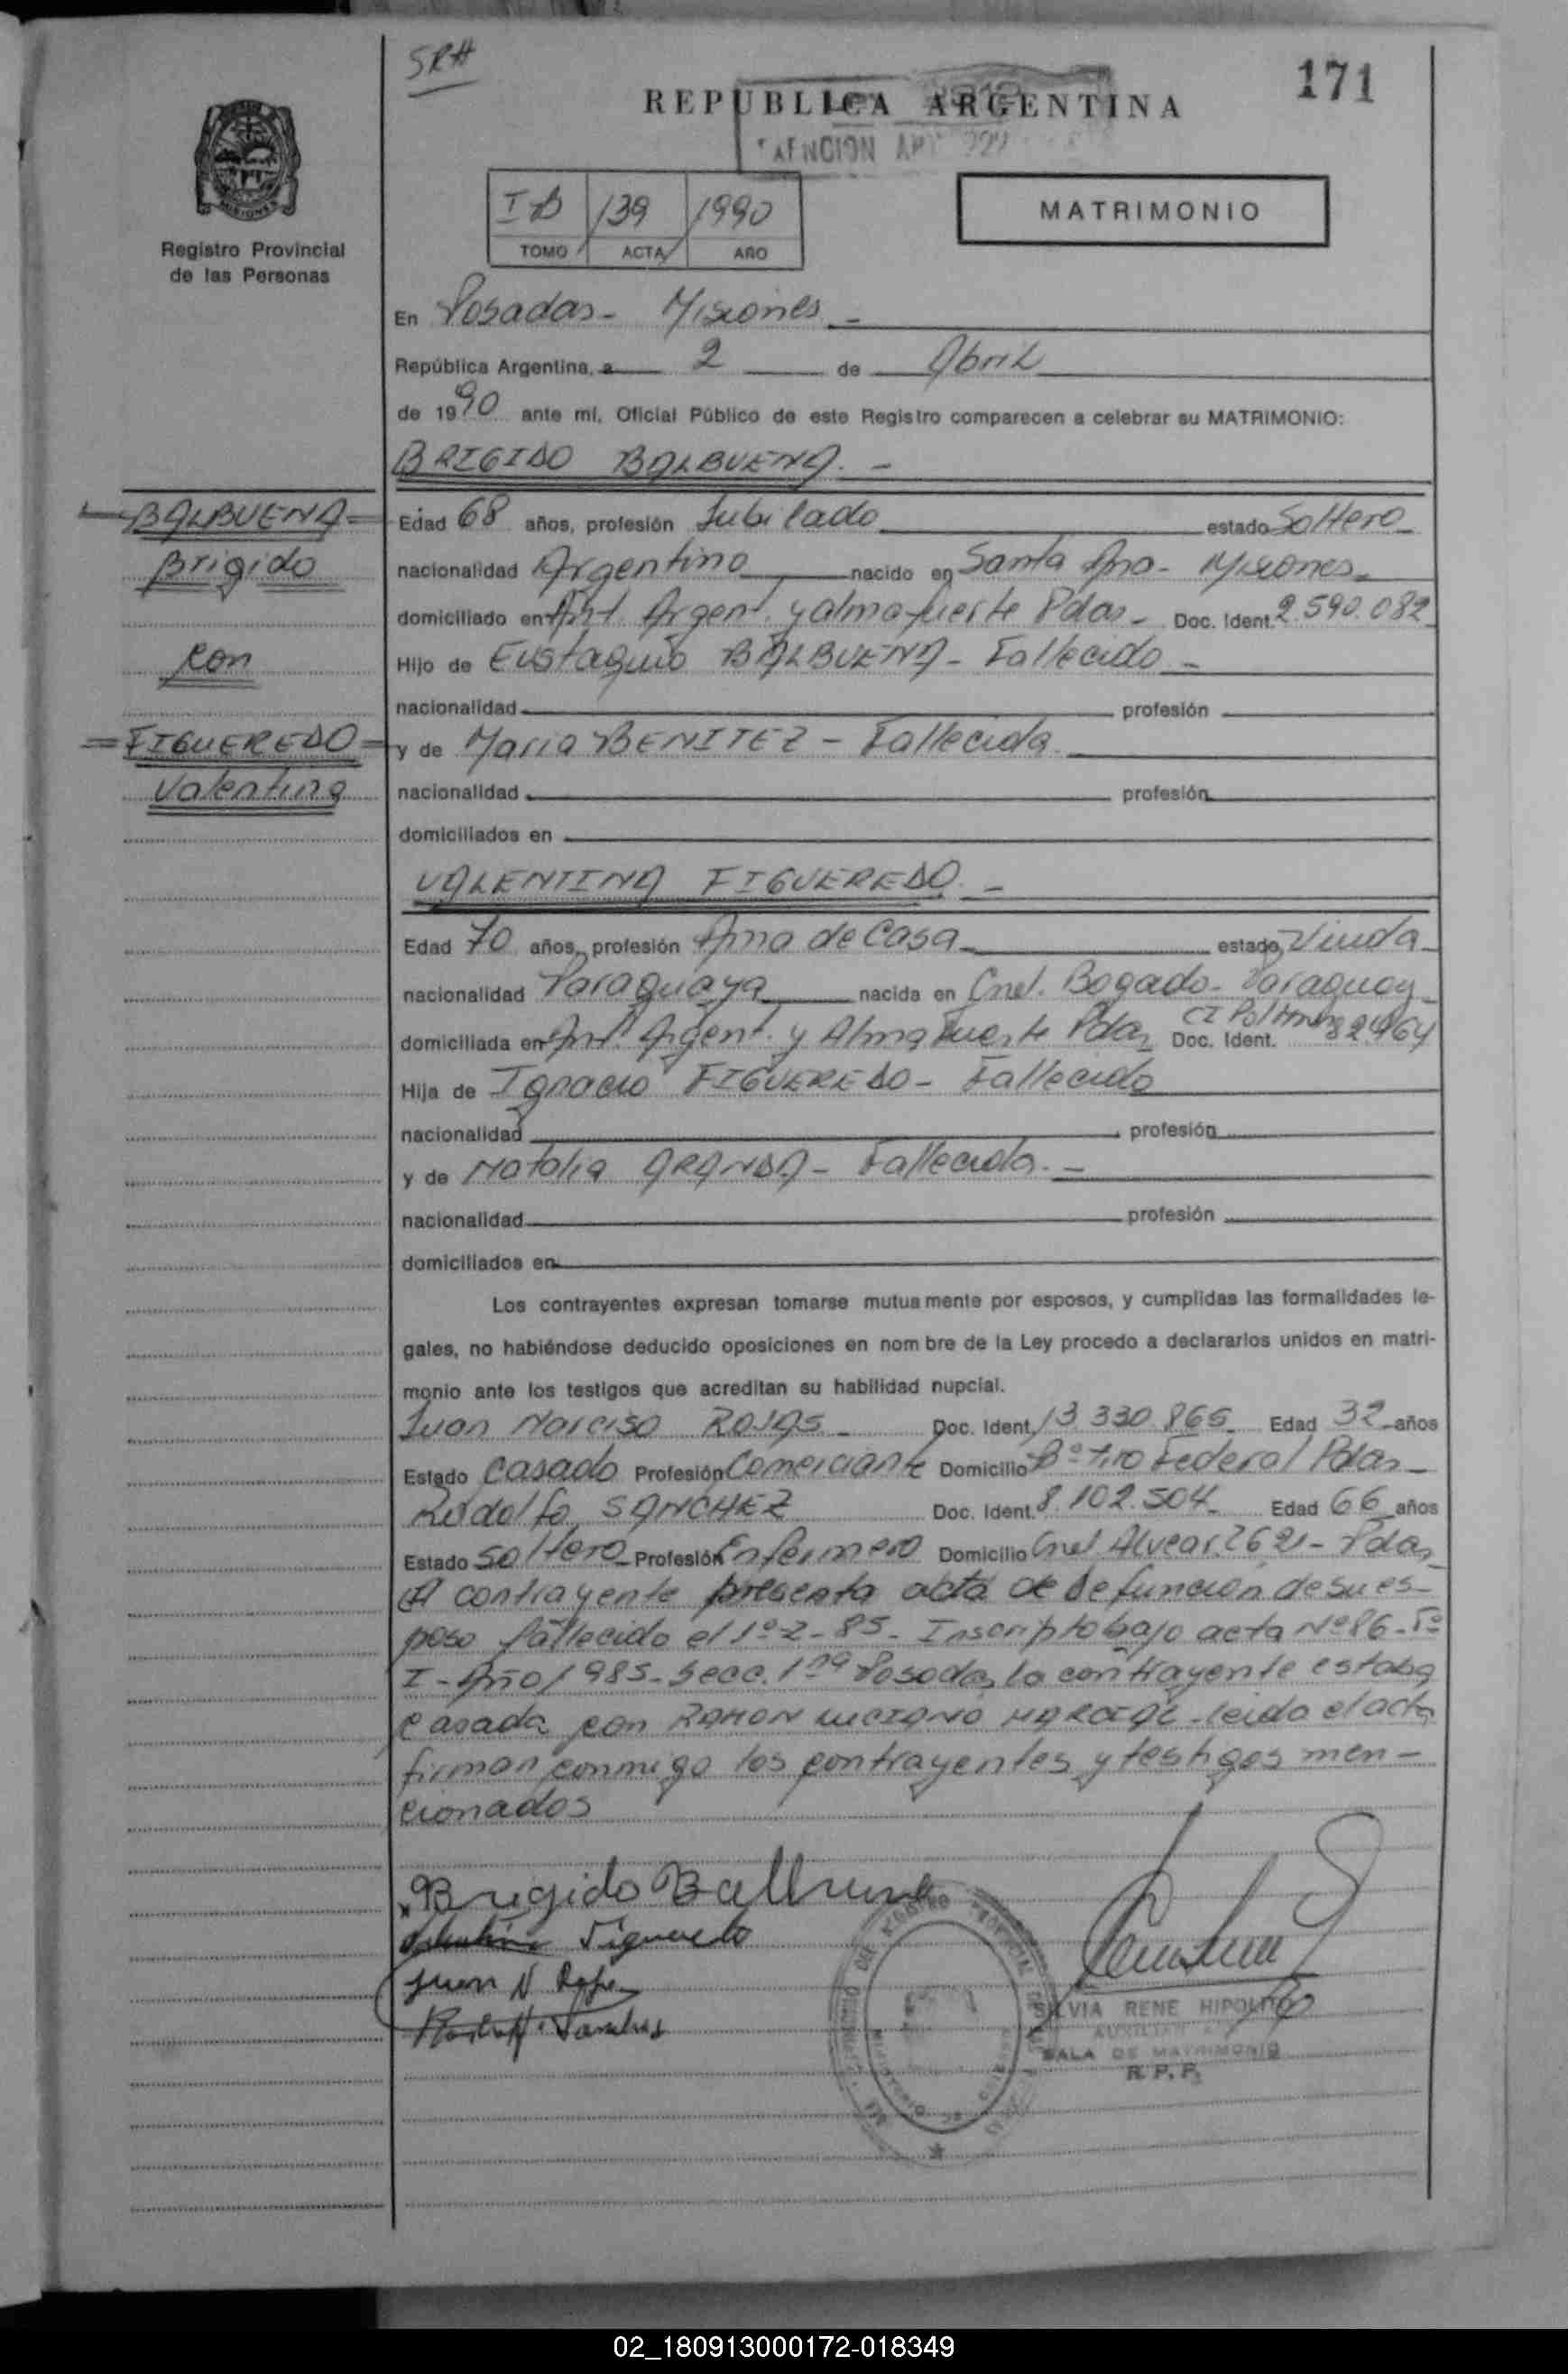 SRH
171
REPUBLICA ARGENTINA
ATENCION ART
MISIONES
Registro Provincial
de las Personas
ID 139 1990
TOMO ACTA AÑO
MATRIMONIO
En Posadas - Misiones -
República Argentina, a 2 de Abril
de 1990 ante mí, Oficial Público de este Registro comparecen a celebrar su MATRIMONIO:
BRIGIDO BALBUENA. -
=BALBUENA=
Brigido
con
=FIGUEREDO=
Valentina
Edad 68 años, profesión Jubilado estado Soltero
nacionalidad Argentino nacido en Santa Ana - Misiones
domiciliado en Ant. Argent. y almafuerte Pdas - Doc. Ident. 2.590.082
Hijo de Eustaquio BALBUENA - Fallecido -
nacionalidad profesión
y de Maria BENITEZ - Fallecida
nacionalidad profesión
domiciliados en
VALENTINA FIGUEREDO. -
Edad 70 años, profesión Ama de Casa estado Viuda
nacionalidad Paraguaya nacida en Cnel. Bogado - Paraguay
domiciliada en Ant. Argent. y Almafuerte Pdas Doc. Ident. CI Pol
Hija de Ignacio FIGUEREDO - Fallecido
nacionalidad profesión
y de Natalia ARANDA - Fallecida. -
nacionalidad profesión
domiciliados en
Los contrayentes expresan tomarse mutuamente por esposos, y cumplidas las formalidades le-
gales, no habiéndose deducido oposiciones en nombre de la Ley procedo a declararlos unidos en matri-
monio ante los testigos que acreditan su habilidad nupcial.
Juan Narciso ROJAS Doc. Ident. 13.330.865 Edad 32 años
Estado Casado Profesión Comerciante Domicilio Bº Tiro Federal Pdas
Rodolfo SANCHEZ Doc. Ident. 8.102.504 Edad 66 años
Estado Soltero Profesión Enfermero Domicilio Cnel. Alvear 2621 - Pdas
contrayente presenta acta de defunción de su es-
poso fallecido el 1º-2-85 - Inscripto bajo acta Nº 86 - Tº
I - Año 1985 - Secc. 1ra Posadas, la contrayente estaba
casada con RAMON LUCIANO MARCIAL - leida el acta
firman conmigo los contrayentes y testigos men-
cionados
Brigido Balbuena
Valentina Figueredo
Juan N Rojas
Rodolfo Sanches
SILVIA RENE HIPOLITO
AUXILIAR
SALA DE MATRIMONIO
R. P. P.
02_180913000172-018349